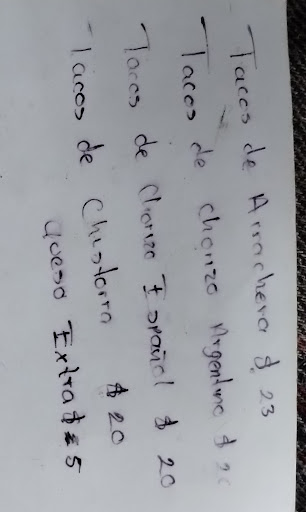 Tacos de Arrachera $ 23
Tacos de chorizo Argentino $ 20
Tacos de Chorizo Español $ 20
Tacos de Chistorra $ 20
queso Extra $ 5